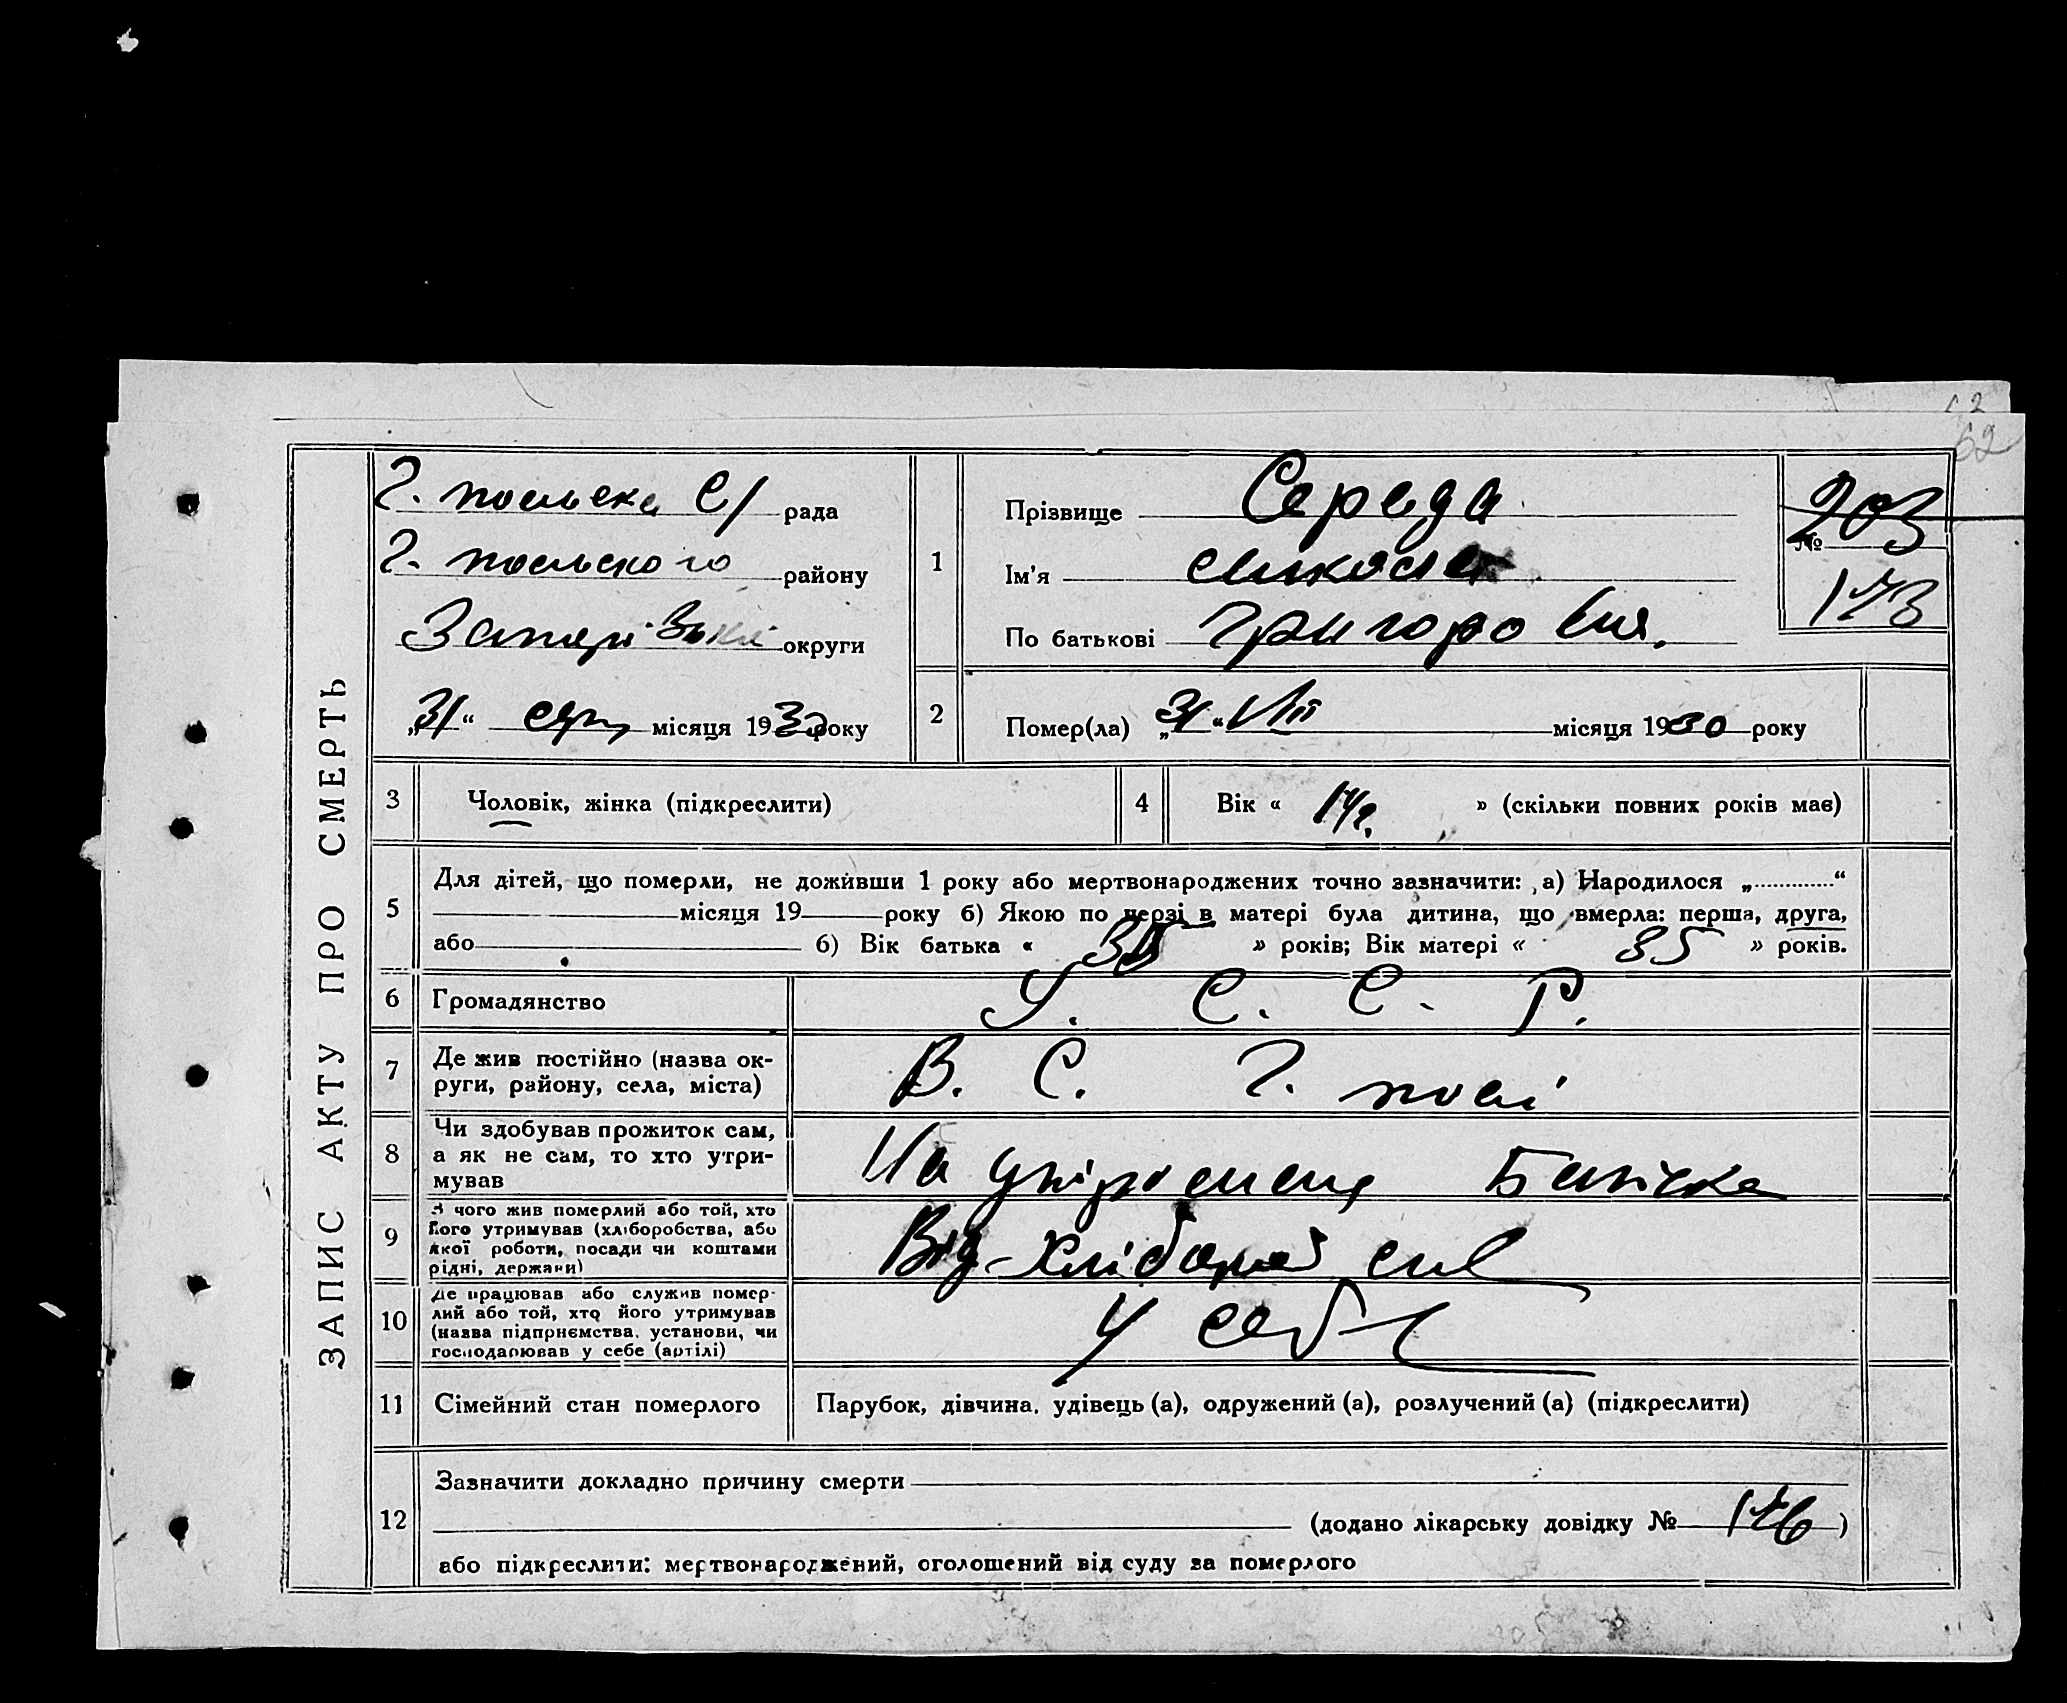 62
ЗАПИС АКТУ ПРО СМЕРТЬ
Г. польска С/ рада
Г. польского району
округи
„31“ серп. місяця 1930 року
1
Прізвище Середа
Ім'я Микола
По батькові Григорович.
203
№
173
2
Помер(ла) „31“ VIII місяця 1930 року
3
Чоловік, жінка (підкреслити)
4
Вік « 14 » (скільки повних років має)
5
Для дітей, що померли, не доживши 1 року або мертвонароджених точно зазначити: а) Народилося „............“
місяця 19 року б) Якою по черзі в матері була дитина, що вмерла: перша, друга,
або б) Вік батька « 35 » років; Вік матері « 35 » років.
6
Громадянство
У. С. С. Р.
7
Де жив постійно (назва округи, району, села, міста)
В. С. Г. полі
8
Чи здобував прожиток сам,
а як не сам, то хто утри-
мував
На утриманні Батька
9
З чого жив померлий або той, хто
його утримував (хліборобства, або
якої роботи, посади чи коштами
рідні, держави)
Від
10
Де працював або служив помер-
лий або той, хто його утримував
(назва підприємства, установи, чи
господарював у себе (артілі)
У себе
11
Сімейний стан померлого
Парубок, дівчина, удівець (а), одружений (а), розлучений (а) (підкреслити)
12
Зазначити докладно причину смерти
(додано лікарську довідку № 176)
або підкреслити: мертвонароджений, оголошений від суду за померлого